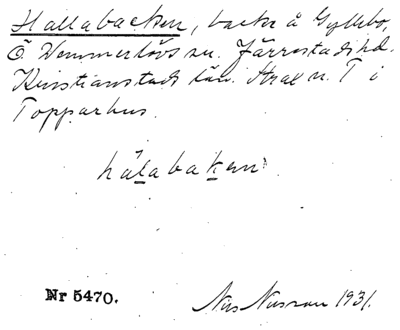 Hallabacken, backe å Gyllebo,
Ö. Vemmerlövs sn. Järrestads hd.
Kristianstads län. Strax n. T i
Topparhus.
hálabakan
Nr 5470.
Nils Nilsson 1931.